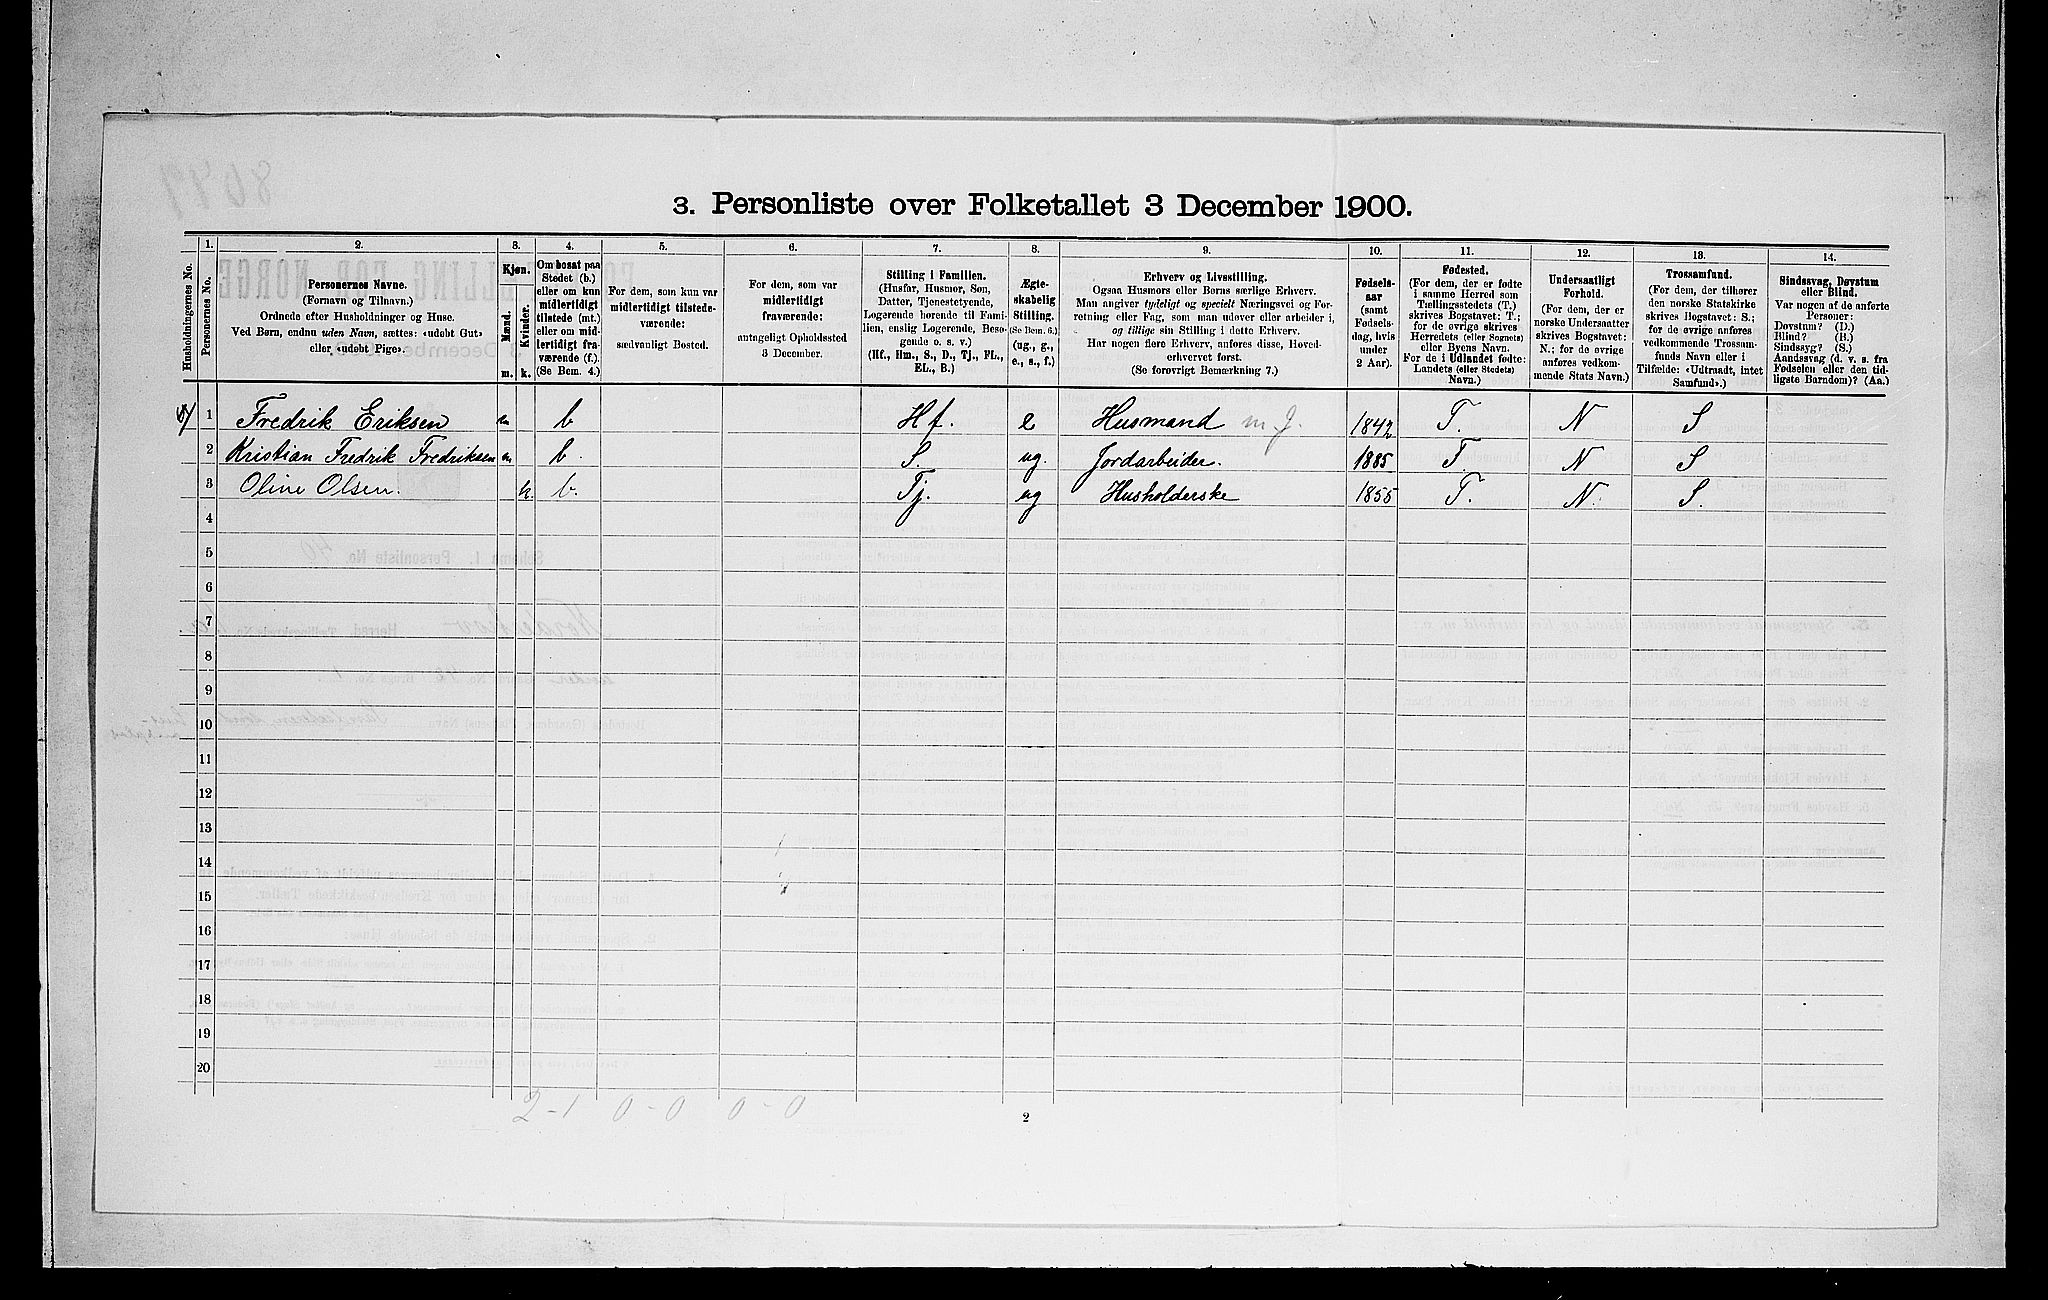 3. Personliste over Folketallet 3 December 1900.
Husholdningernes No.
1. Personernes No.
2.
Personernes Navne.
(Fornavn og Tilnavn.)
Ordnede efter Husholdninger og Huse.
Ved Børn, endnu uden Navn, sættes: «udøbt Gut»
eller «udøbt Pige».
3.
Kjøn.
Mænd.
Kvinder.
m. k.
4.
Om bosat paa
Stedet (b.)
eller om kun
midlertidigt
tilstede (mt.)
eller om mid-
lertidigt fra-
værende (f.).
(Se Bem. 4.)
5.
For dem, som kun var
midlertidigt tilstede-
værende:
sædvanligt Bosted.
6.
For dem, som var
midlertidigt
fraværende:
antageligt Opholdssted
3 December.
7.
Stilling i Familien.
(Husfar, Husmor, Søn,
Datter, Tjenestetyende,
Logerende hørende til Fami-
lien, enslig Logerende, Besø-
gende o. s. v.)
(Hf., Hm., S., D., Tj., FL.,
EL., B.)
8.
Ægte-
skabelig
Stilling.
(Se Bem. 6.)
(ug., g.,
e., s., f.)
9.
Erhverv og Livsstilling.
Ogsaa Husmors eller Børns særlige Erhverv.
Man angiver tydeligt og specielt Næringsvei og For-
retning eller Fag, som man udøver eller arbeider i,
og tillige sin Stilling i dette Erhverv.
Har nogen flere Erhverv, anføres disse, Hoved-
erhvervet først.
(Se forøvrigt Bemærkning 7.)
10.
Fødsels-
aar
(samt
Fødsels-
dag, hvis
under
2 Aar).
11.
Fødested.
(For dem, der er fødte
i samme Herred som
Tællingsstedets (T.)
skrives Bogstavet: T.;
for de øvrige skrives
Herredets (eller Sognets)
eller Byens Navn.
For de i Udlandet fødte:
Landets (eller Stedets)
Navn.)
12.
Undersaatligt
Forhold.
(For dem, der er
norske Undersaatter
skrives Bogstavet:
N.; for de øvrige
anføres vedkom-
mende Stats Navn.)
13.
Trossamfund.
(For dem, der tilhører
den norske Statskirke
skrives Bogstavet: S.;
for de øvrige anføres
vedkommende Trossam-
funds Navn eller i
Tilfælde: «Udtraadt, intet
Samfund».)
14.
Sindssvag, Døvstum
eller Blind.
Var nogen af de anførte
Personer:
Døvstum? (D.)
Blind? (B.)
Sindssyg? (S.)
Aandssvag (d. v. s. fra
Fødselen eller den tid-
ligste Barndom)? (Aa.)
1 Fredrik Eriksen m b Hf. e Husmand m. J. 1842 T. N S
2 Kristian Fredrik Fredriksen m b. S. ug. Jordarbeider. 1885 T. N S
3 Oline Olsen. k. b. Tj. ug Husholderske 1855 T. N. S.
4
5
6
7
8
9
10
11
12
13
14
15
16
17
18
19
20
2-1 0-0 0-0
2